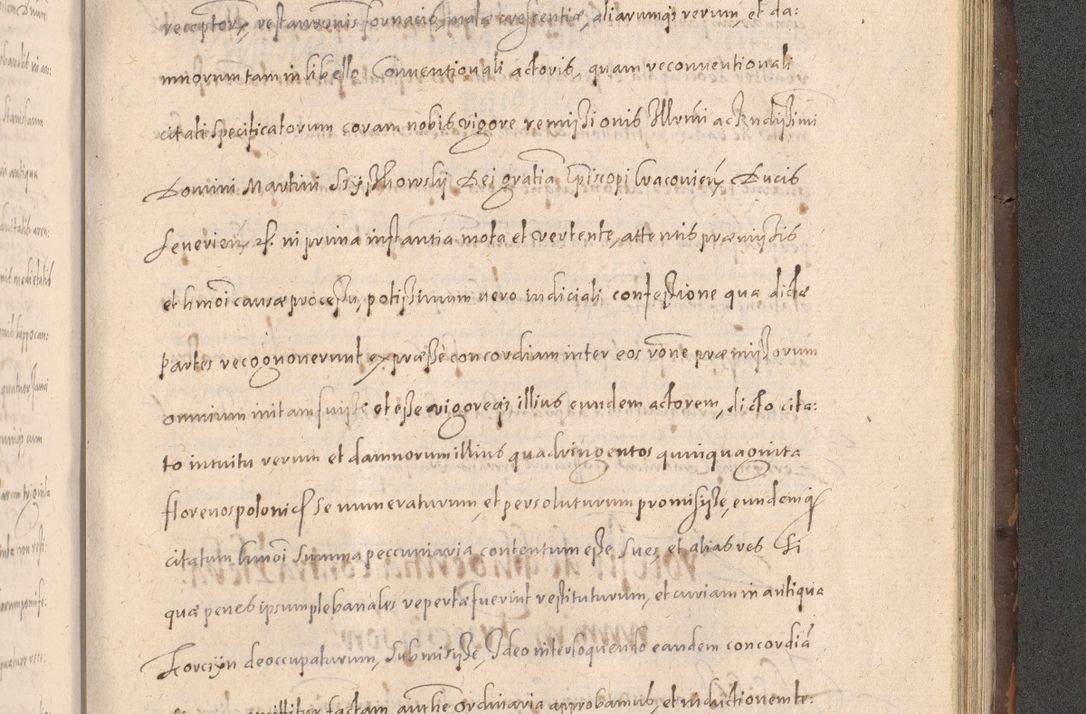 receptorum, restaurationis fornacis, male crescentiæ, aliarumque rerum, et da:
mnorum tam in libello Conventionali actoris, quam reconventionali
citati specificatorum coram nobis vigore remissionis Illrmi ac Rndissimi
Domini Martini Szyszkowskij Dei gratia Episcopi Cracovien, Ducis
Severien, in prima instantia mota et vertente, attentis præmissis
et hmoi causæ processu, potissimum vero iudiciali confessione qua dictæ
Partes recognoverunt expræsse concordiam inter eos rone præmissorum
omnium initam fuisse et esse vigoreque illius eundem actorem, dicto cita:
to intuitu rerum et damnorum illius quadringentos quinquaginta
florenos polonic se numeraturum, et persoluturum promisisse, eundemq
citatum hmoi summa peccuniaria contentum esse, suas, et alias res si
quæ penes ipsum plebanales repertæ fuerint restituturum, et curiam in antiqua
Korczyn deoccupaturum, submisisse, Ideo interloquendo eandem concordiã
taliter factam, authe ordinaria approbamus, et in dictionem te: